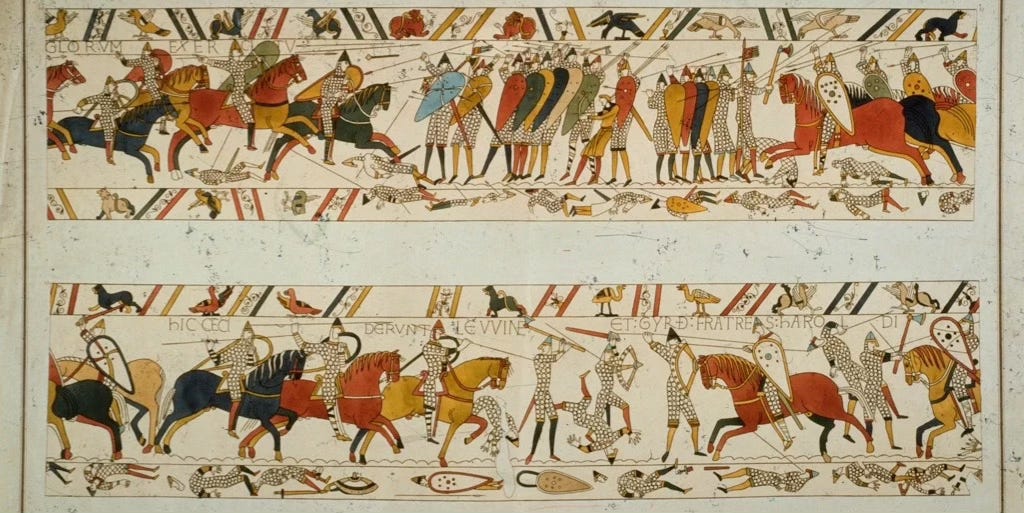 GLORVM EXER
HIC CECI DERVNT LEVVINE ET GYRÐ FRATRES HAROL DI